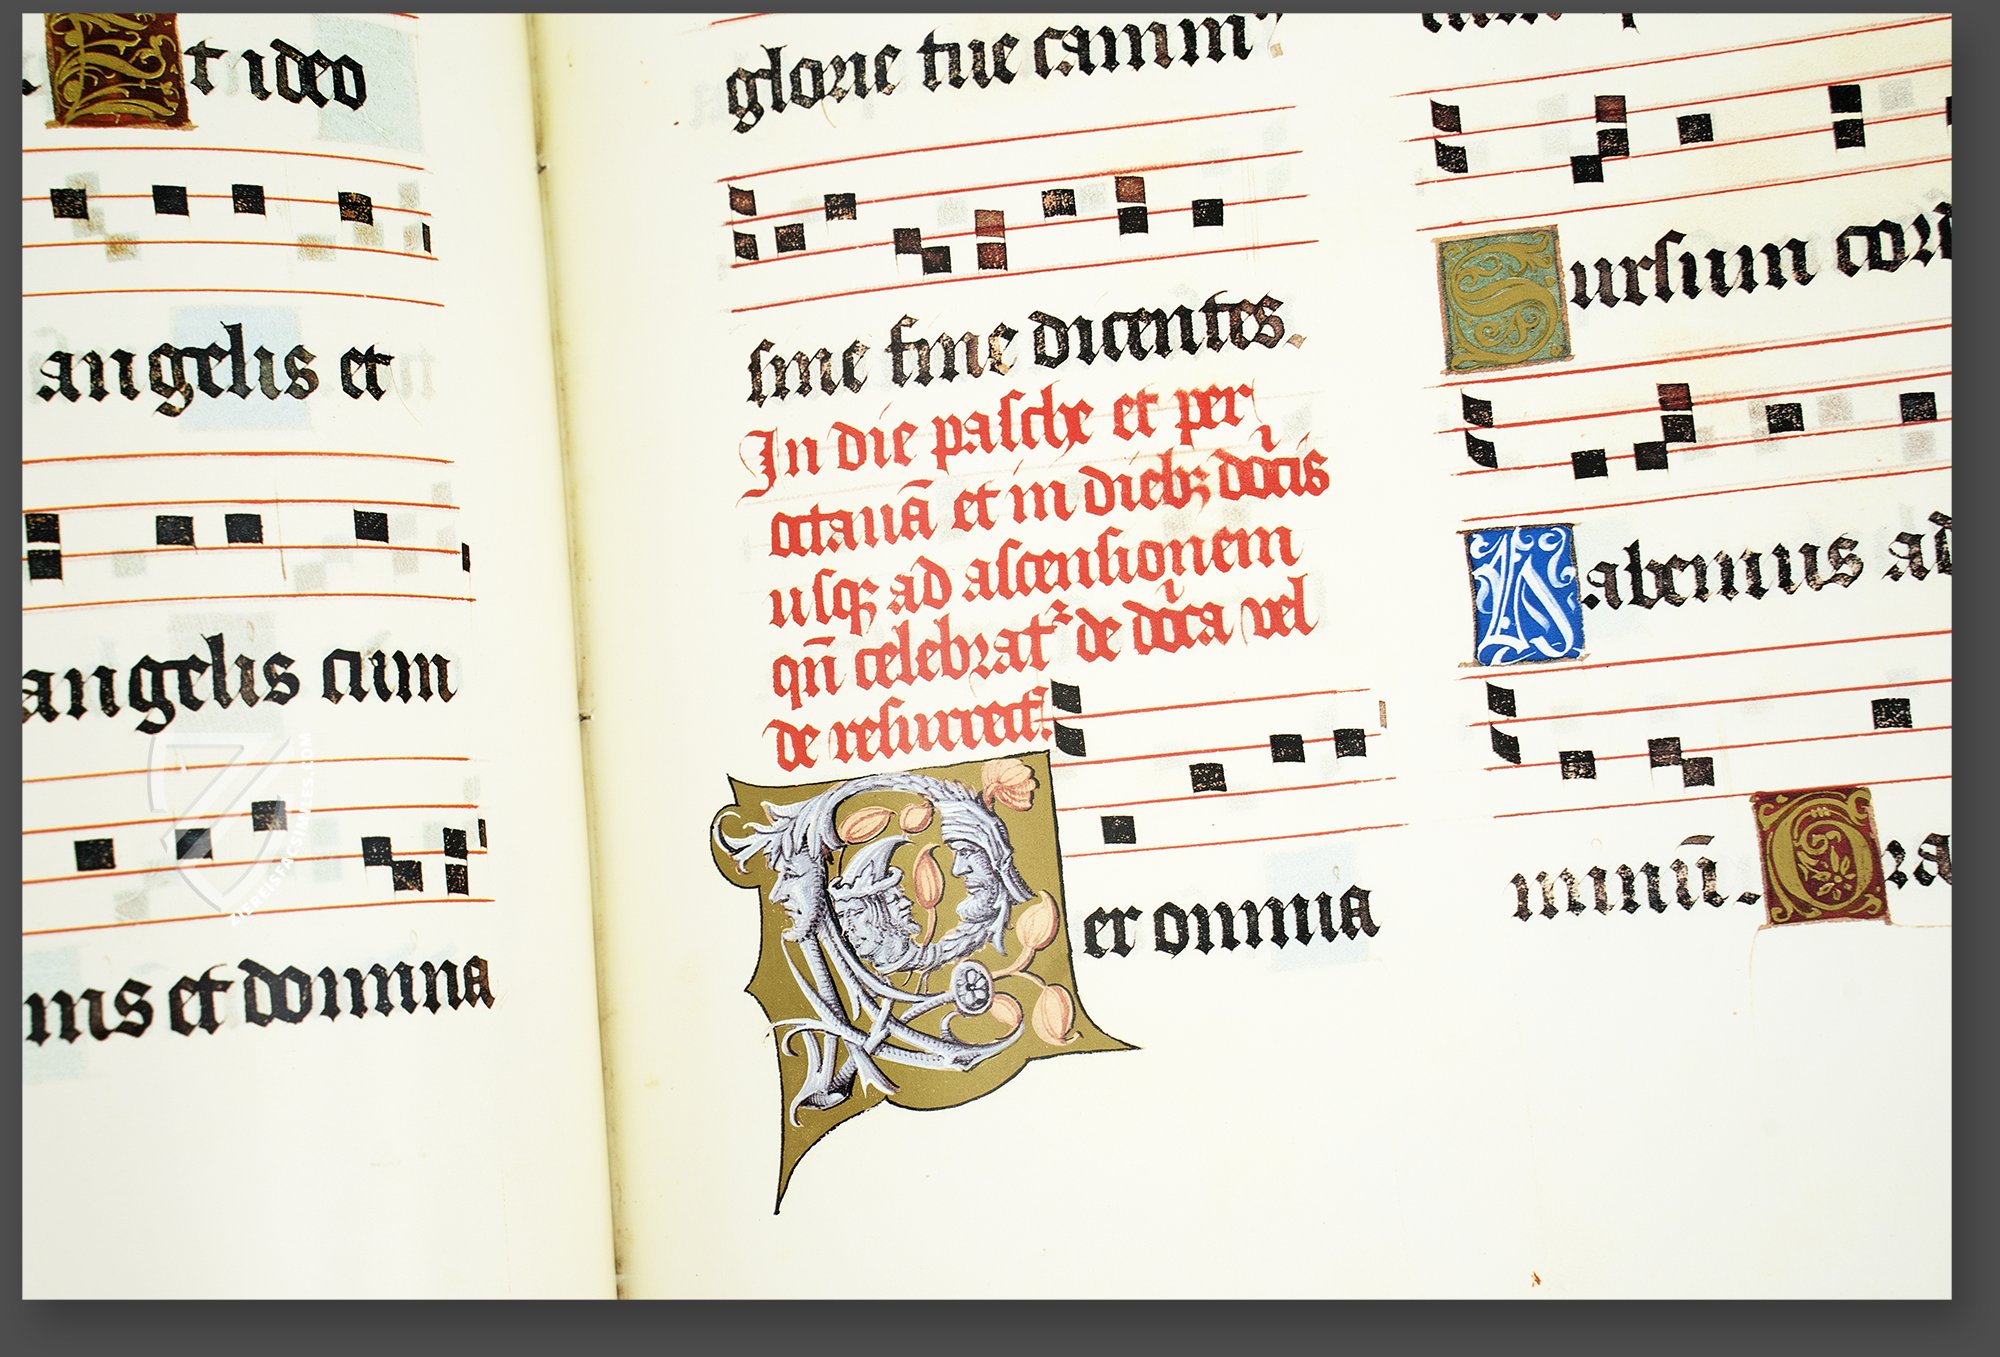 Et ideo
angelis et
angelis cum
nis et domina
glorie tue canim⁹
sine fine dicentes.
In die pasche et per
octauā et in diebꝫ dn̄icis
usqꝫ ad ascensionem
qn̄ celebrat᷑ de
de resurrect̄.
Per omnia
Sursum cord
Habemus ad
minū. Gra
ZIEREISFACSIMILES.COM